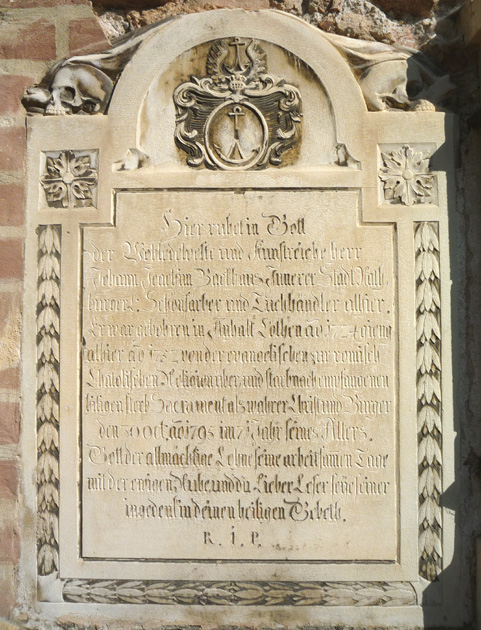 Hier ruhet in Gott
der Wohledelveste und Kunstreiche herr
Johann Joachim Innerer Stadt Rath
Schönfarber und Tuchhändler allhier.
Er war gebohren in Anhalt Cothen ao 1724 gieng
alhier ao 1752 von der evangelischen zur romisch
Chatolischen Religion über und starb nach empfangenen
heiligen sterb Sacrament als wahrer Christ und Bürger
den 30 Oct. ao 1795 im 71 Jahr seines Alters.
Gott der allmächtige Lohne seine arbeitsamen Tage
mit der ewigen Ruhe und du Lieber Leser seye seiner
ingedenk in deinen heiligen Gebeth.
R. I. P.